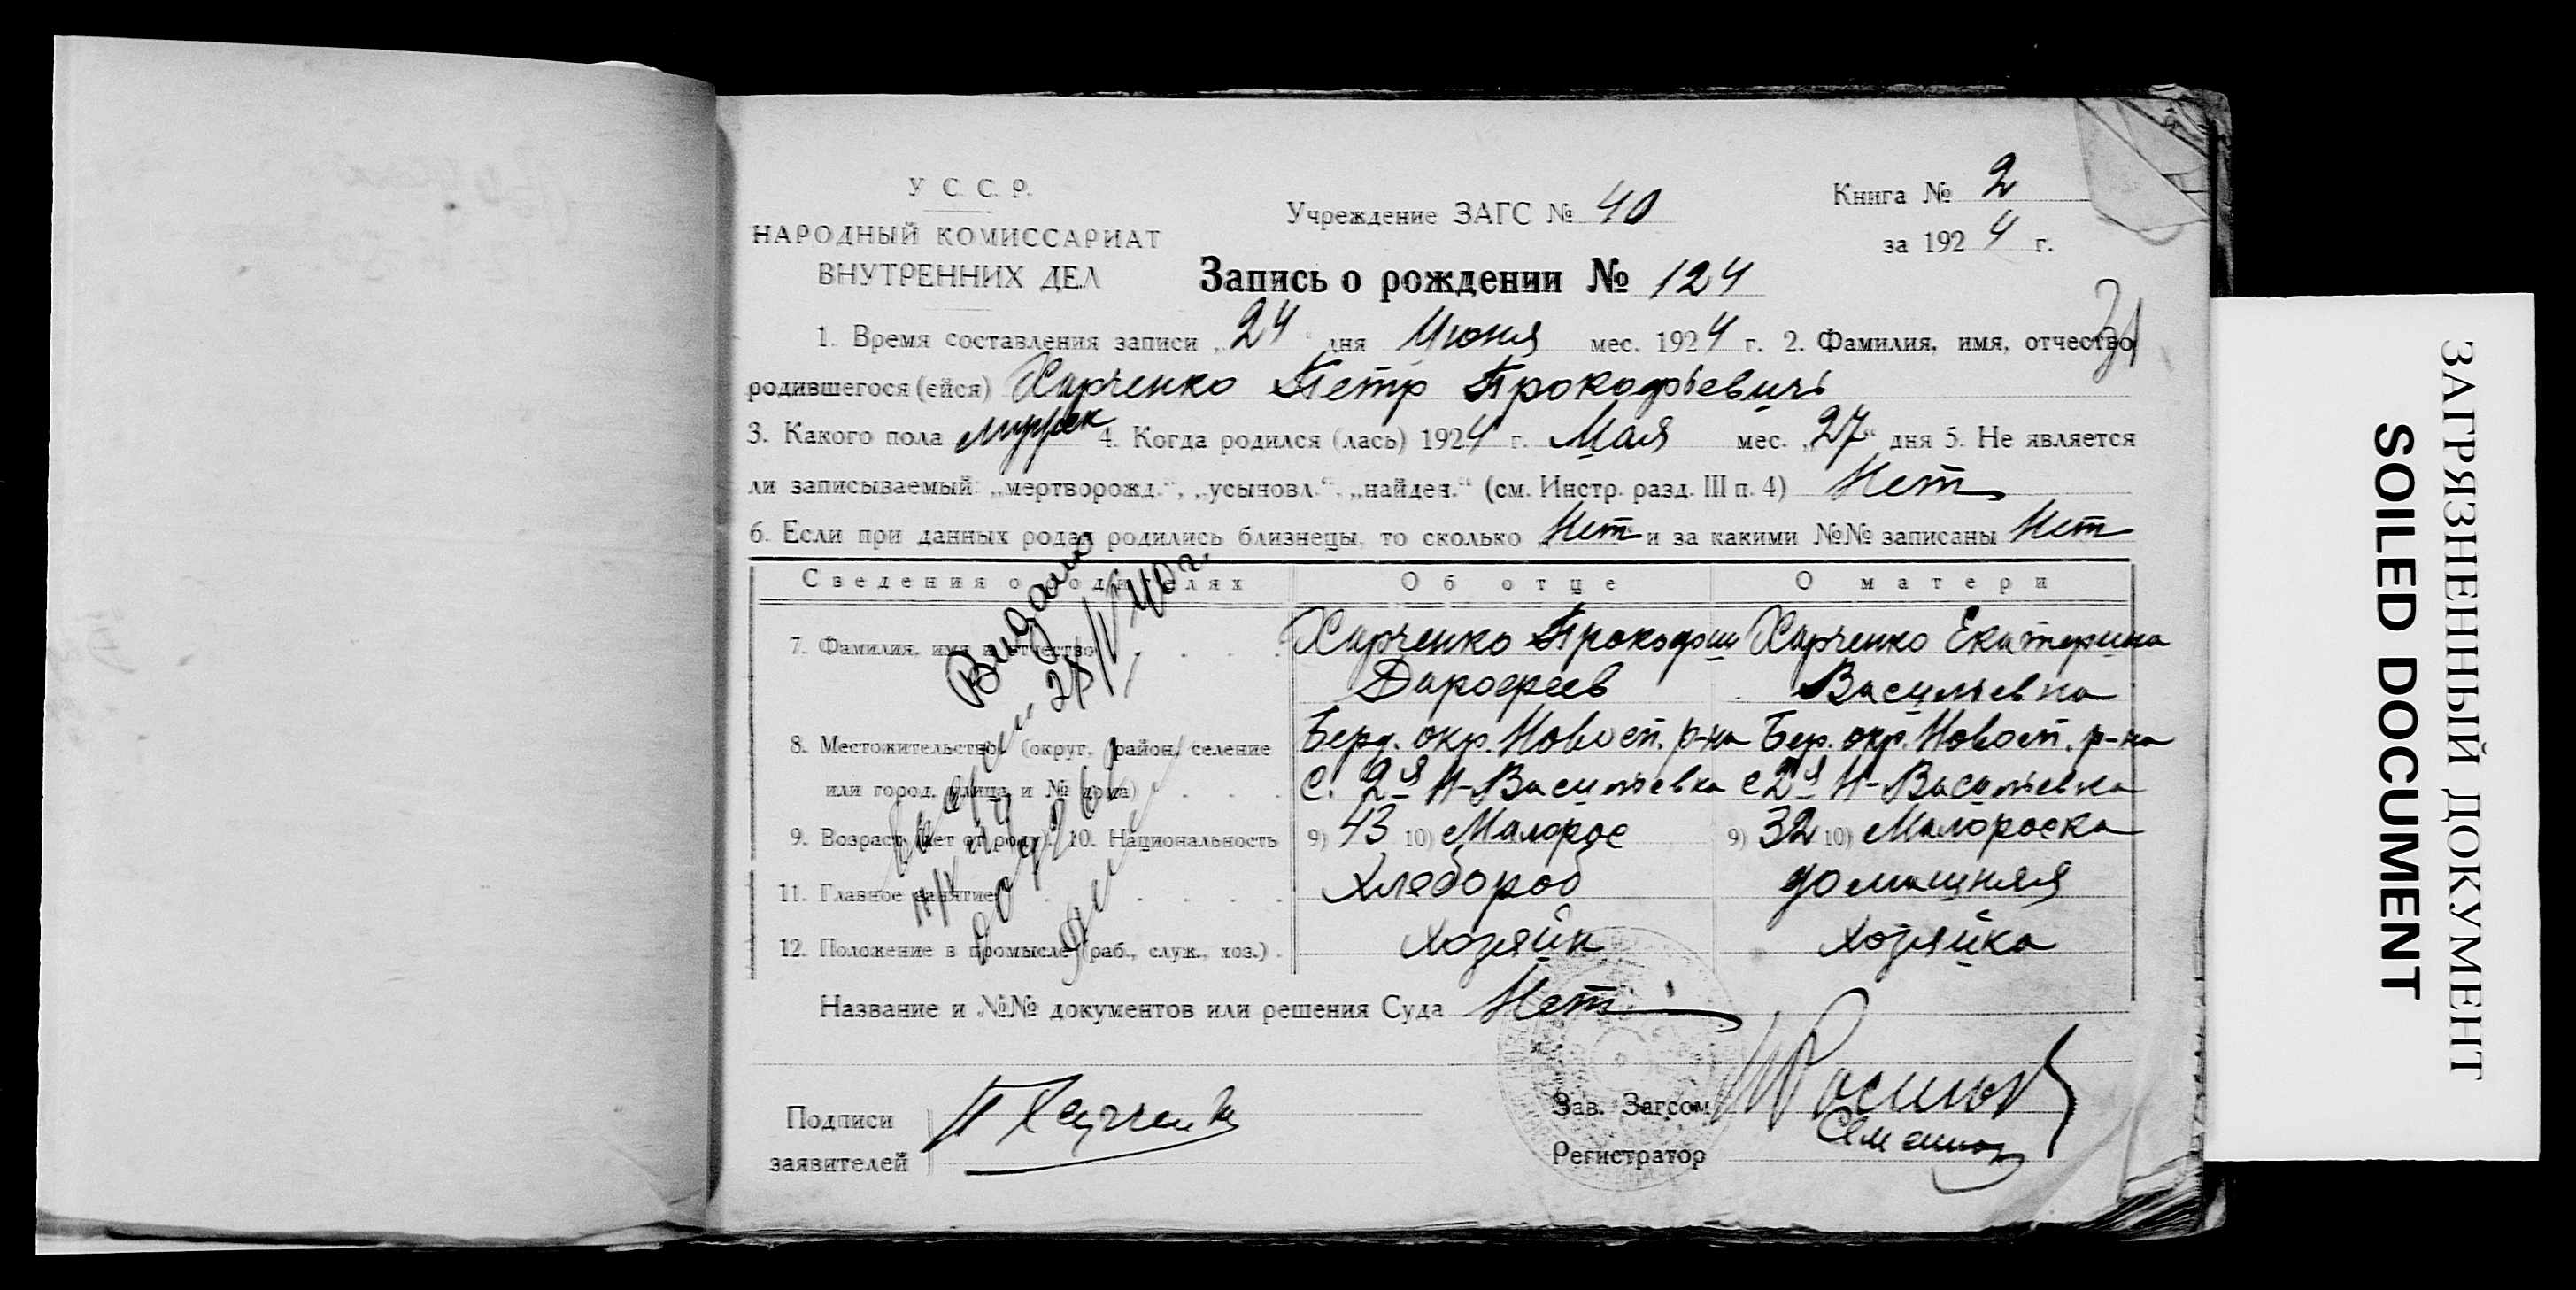 У С. С. Р.
НАРОДНЫЙ КОМИССАРИАТ
ВНУТРЕННИХ ДЕЛ
Учреждение ЗАГС № 40
Книга № 2
за 1924 г.
Запись о рождении № 124
31
1. Время составления записи „24" дня Июня мес. 1924 г. 2. Фамилия, имя, отчество
родившегося (ейся) Харченко Петр Прокофьевичь
3. Какого пола мужск 4. Когда родился (лась) 1924 г. Мая мес. „27" дня 5. Не является
ли записываемый: „мертворожд.", „усыновл.", „найден." (см. Инстр. разд. III п. 4) Нет
6. Если при данных родах родились близнецы, то сколько Нет и за какими №№ записаны Нет
Сведения о родителях Об отце О матери
7. Фамилия, имя и отчество Харченко Прокофий Харченко Екатерина
Дарофеев Васильевна
8. Местожительство (округ, район, селение Берд. окр. Новосп. р-на Бер. окр. Новосп. р-на
или город, улица и № дома) с. 2я Н-Васильевка с 2я Н-Васильевка
9. Возраст (лет от роду) 10. Национальность 9) 43 10) Малорос 9) 32 10) Малороска
11. Главное занятие Хлебороб домашняя
12. Положение в промысле (раб., служ., хоз.) Хозяин хозяйка
Видано
28/II 40 г.
Название и №№ документов или решения Суда Нет
Подписи
заявителей П Харченко
Зав. Загсом
Регистратор
ЗАГРЯЗНЕННЫЙ ДОКУМЕНТ
SOILED DOCUMENT